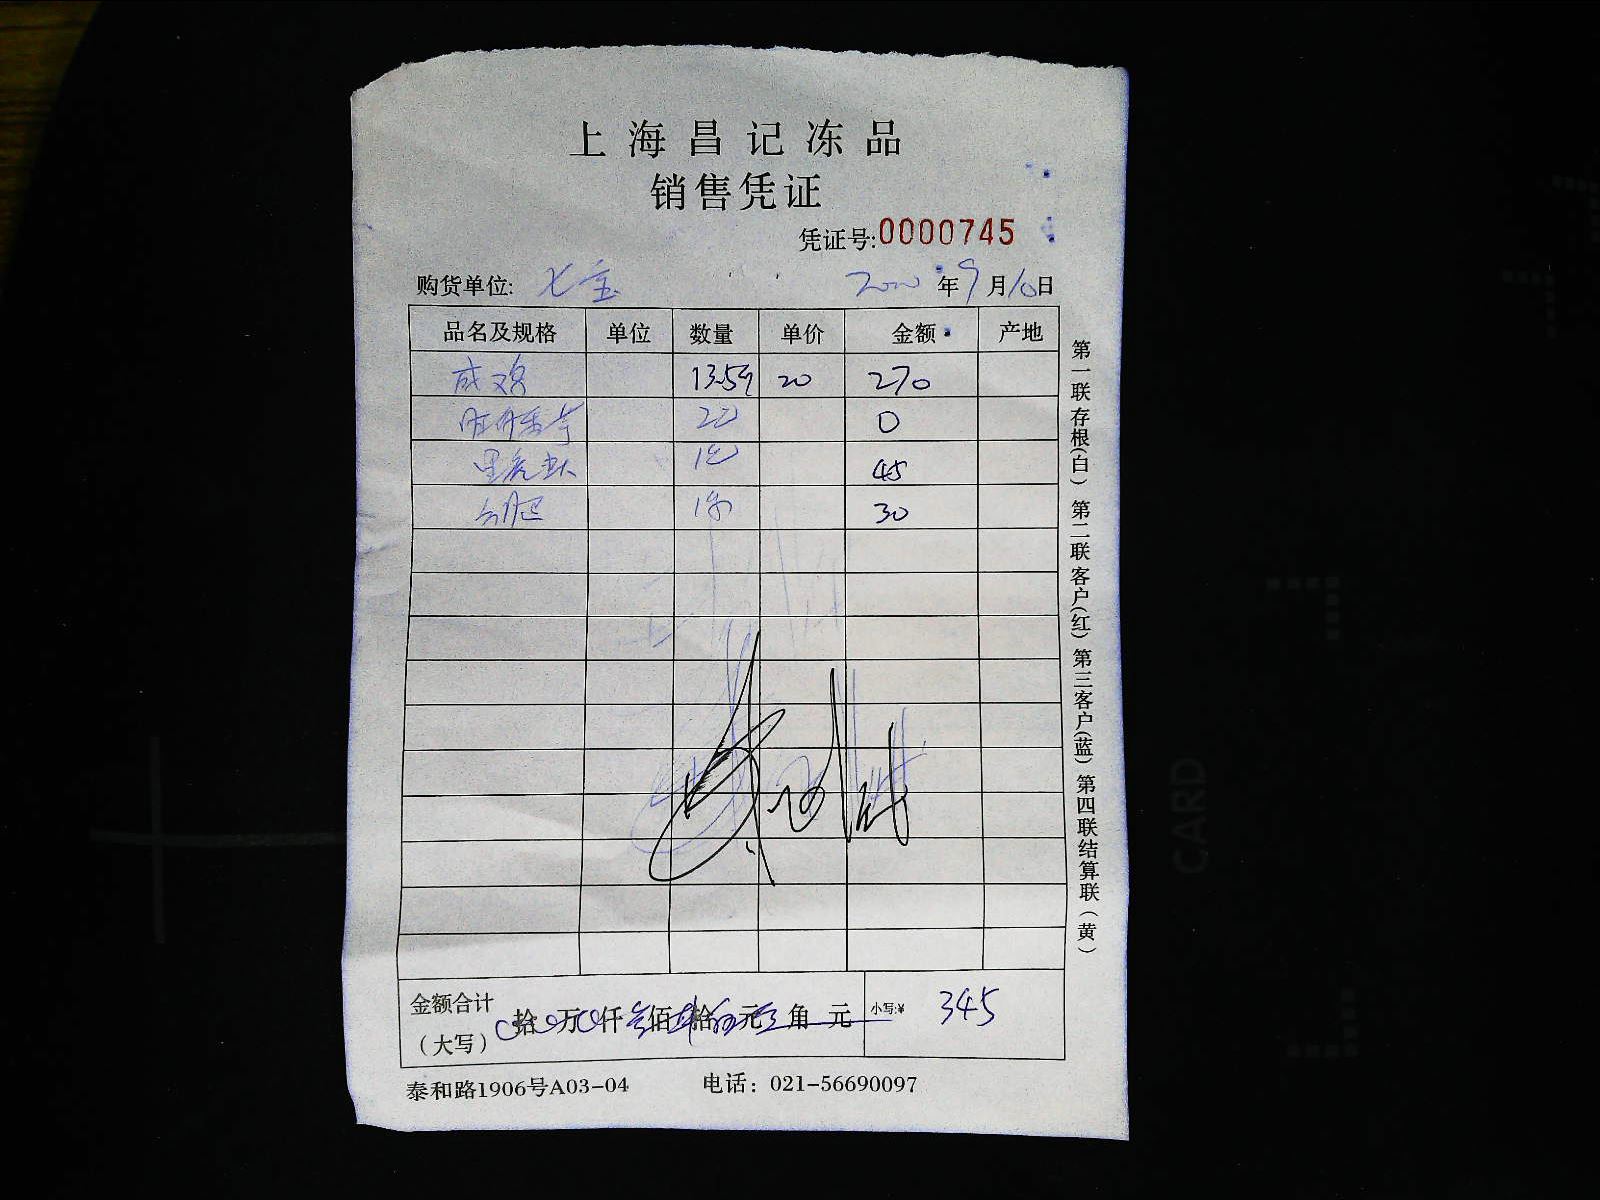 上海昌记冻品
销售凭证
凭证号:0000745
购货单位: 七宝 2020年9月10日
品名及规格 单位 数量 单价 金额 产地
咸鸡 13.5斤 20 270
0
45
30
金额合计
(大写) 拾 万 仟 叁佰 肆拾 伍元 角 元 小写:¥ 345
泰和路1906号A03-04 电话: 021-56690097
第一联存根(白) 第二联客户(红) 第三客户(蓝) 第四联结算联(黄)